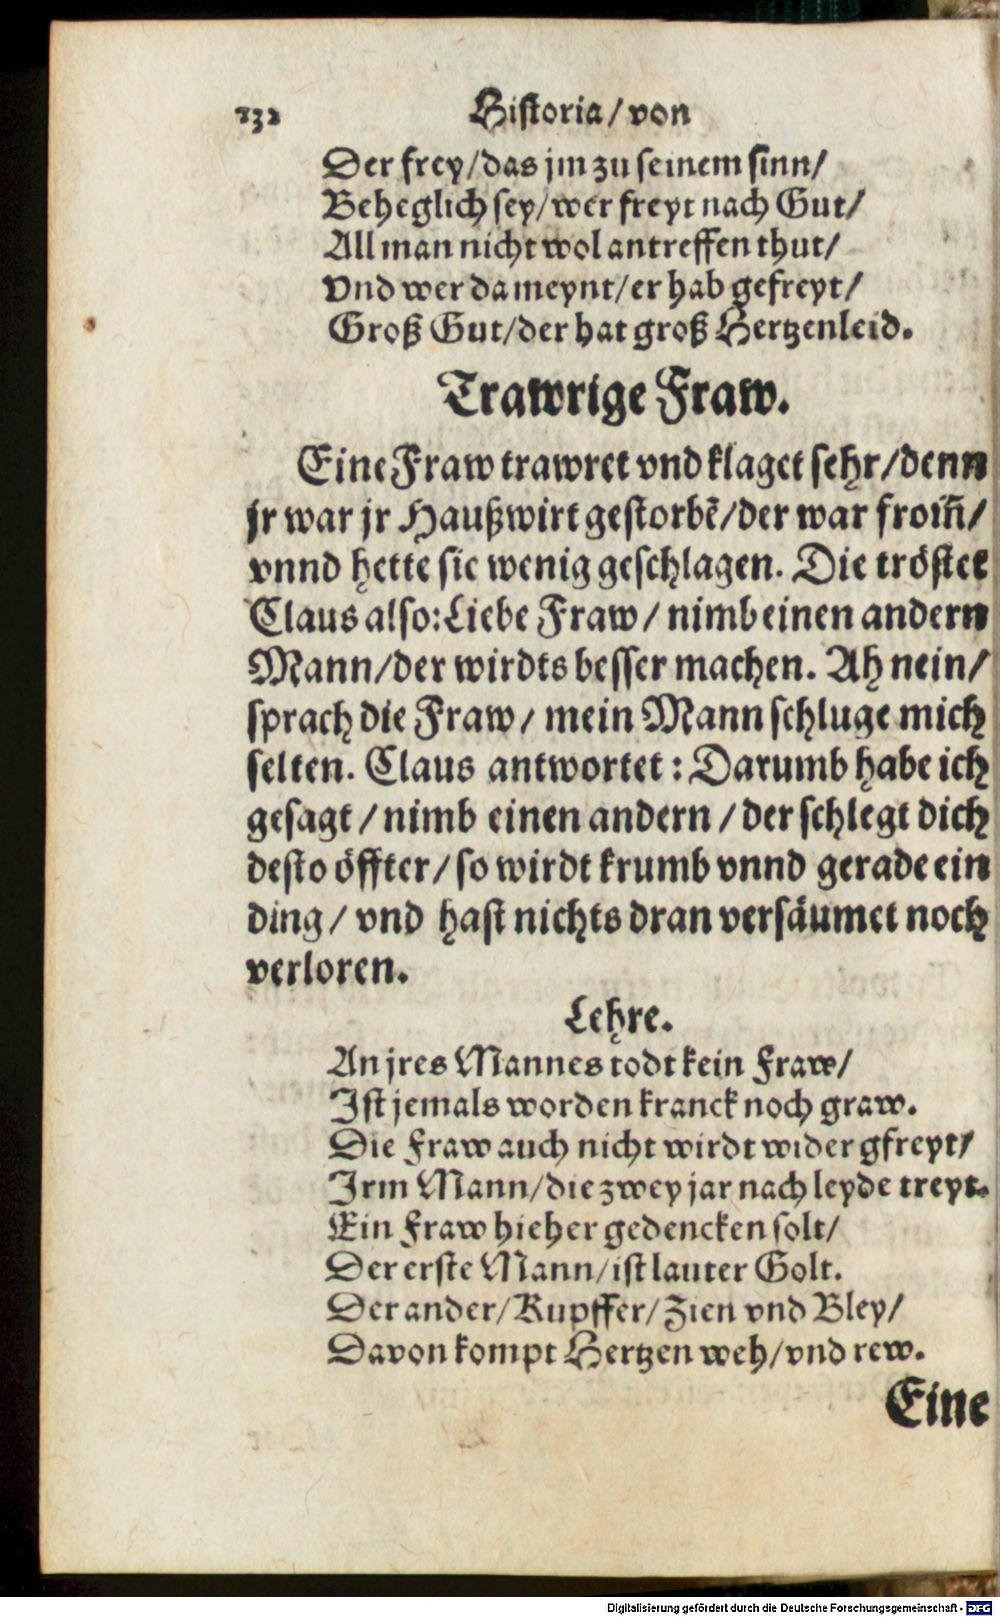 132 Historia/ von
Der frey/ das jm zu seinem sinn/
Beheglich sey/ wer freyt nach Gut/
All man nicht wol antreffen thut/
Vnd wer da meynt/ er hab gefreyt/
Groß Gut/ der hat groß Hertzenleid.
Trawrige Fraw.
Eine Fraw trawret vnd klaget sehr/ denn
jr war jr Haußwirt gestorbẽ/ der war from̃/
vnnd hette sie wenig geschlagen. Die tröstet
Claus also: Liebe Fraw/ nimb einen andern
Mann/ der wirdts besser machen. Ah nein/
sprach die Fraw/ mein Mann schluge mich
selten. Claus antwortet: Darumb habe ich
gesagt/ nimb einen andern/ der schlegt dich
desto öffter/ so wirdt krumb vnnd gerade ein
ding/ vnd hast nichts dran versäumet noch
verloren.
Lehre.
An jres Mannes todt kein Fraw/
Ist jemals worden kranck noch graw.
Die Fraw auch nicht wirdt wider gfreyt/
Irm Mann/ die zwey jar nach leyde treyt.
Ein Fraw hieher gedencken solt/
Der erste Mann/ ist lauter Golt.
Der ander/ Kupffer/ Zien vnd Bley/
Davon kompt Hertzen weh/ vnd rew.
Eine
Digitalisierung gefördert durch die Deutsche Forschungsgemeinschaft - DFG